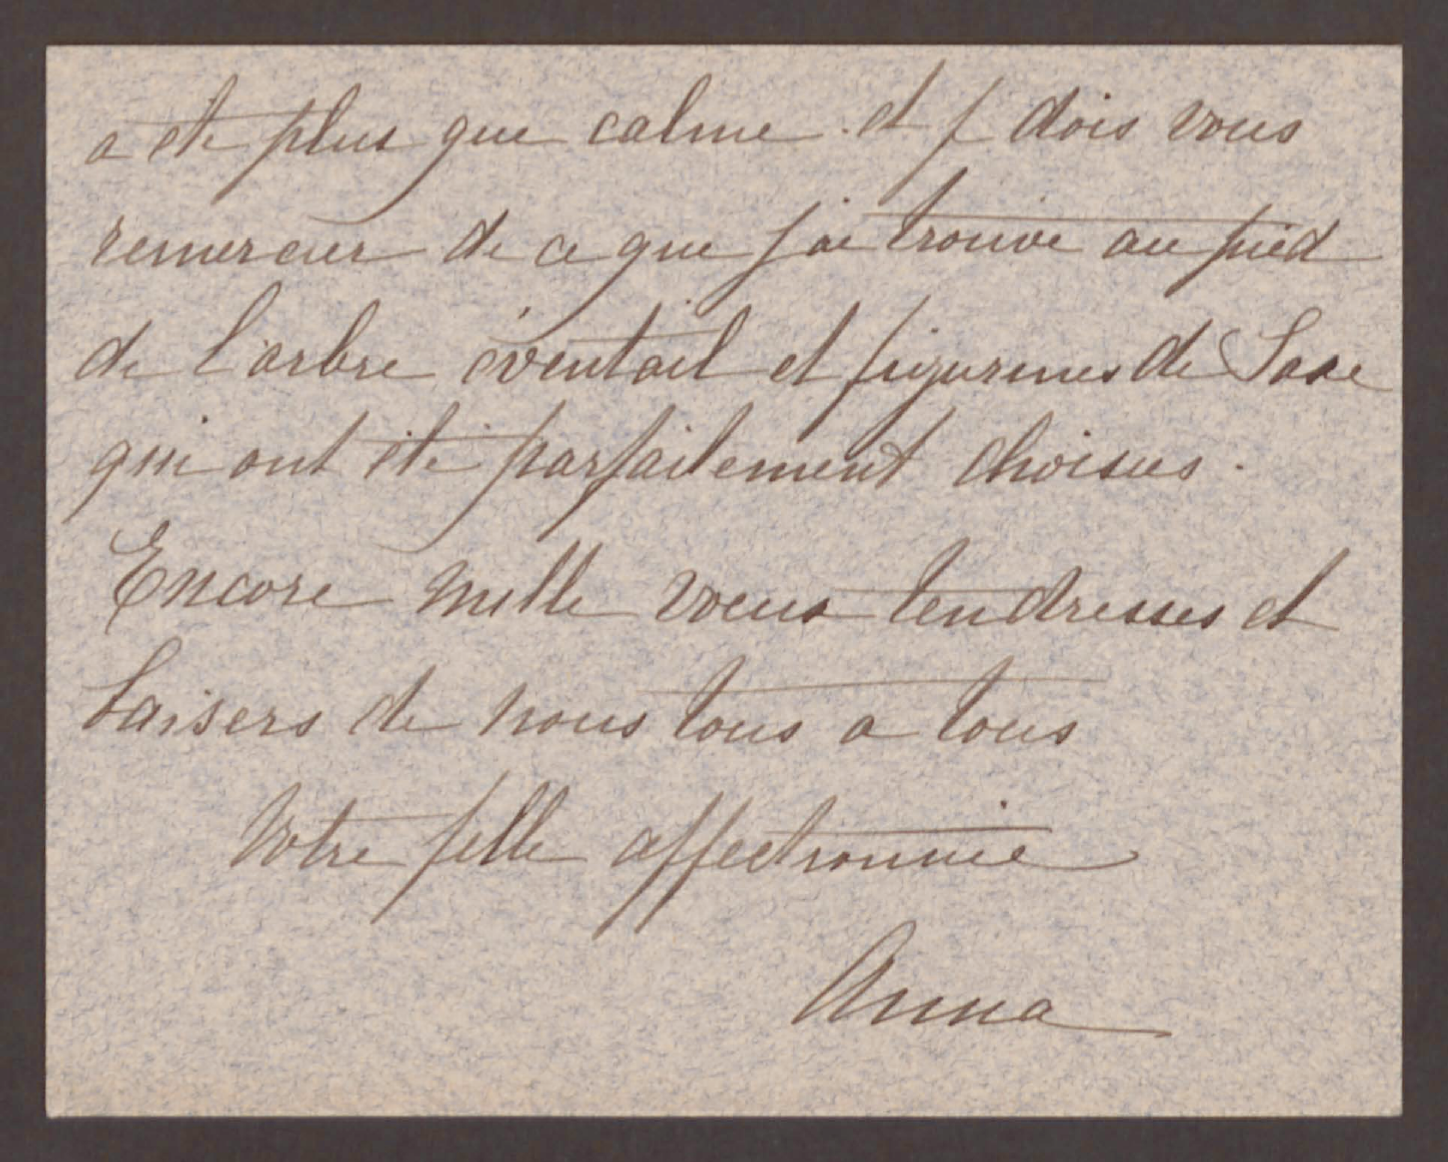 a été plus que calme. et j dois vous
remercier de ce que j'ai trouvé au pied
de l'arbre éventail et figurines de Saxe
qui ont été parfaitement choisies.
Encore mille voeux tendresses et
baisers de nous tous a tous
Votre fille affectionnée
Anna